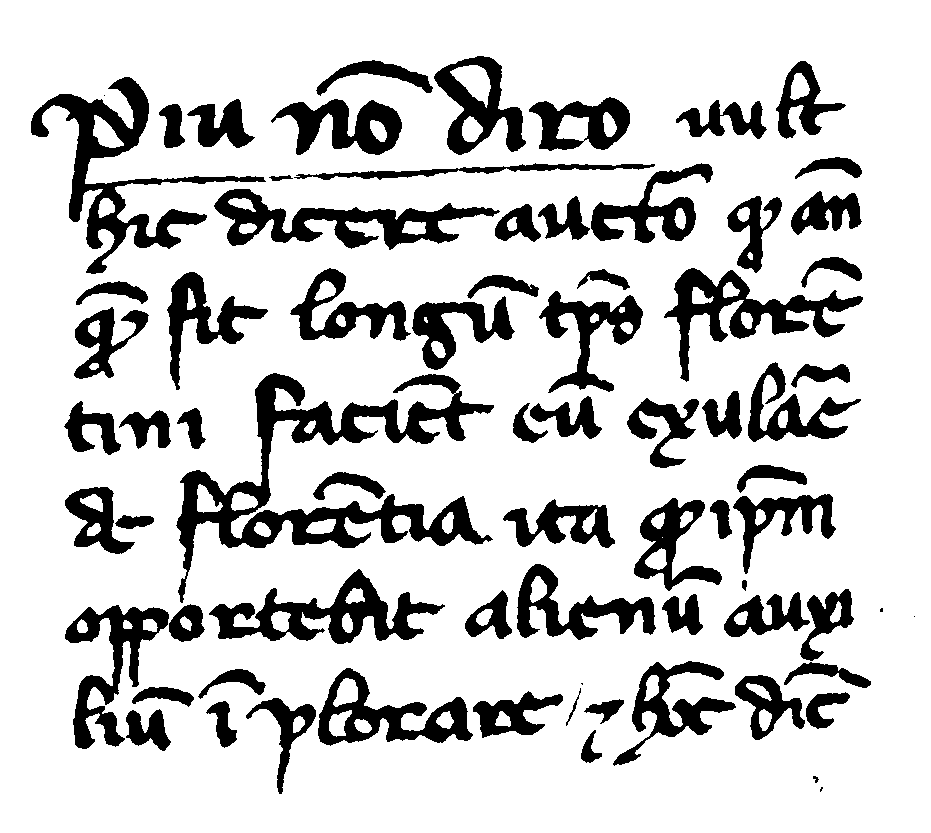 Piu nō diro uult
hic dicere auctō qͥ an̄
qͣ̄ sit longū tp̄s florē
tini faciēt eū exulāē
de florētia ita ꝙ ip̄m
opportebit alienū auxi
liū īplorare / ⁊ hoc̄ dic̄